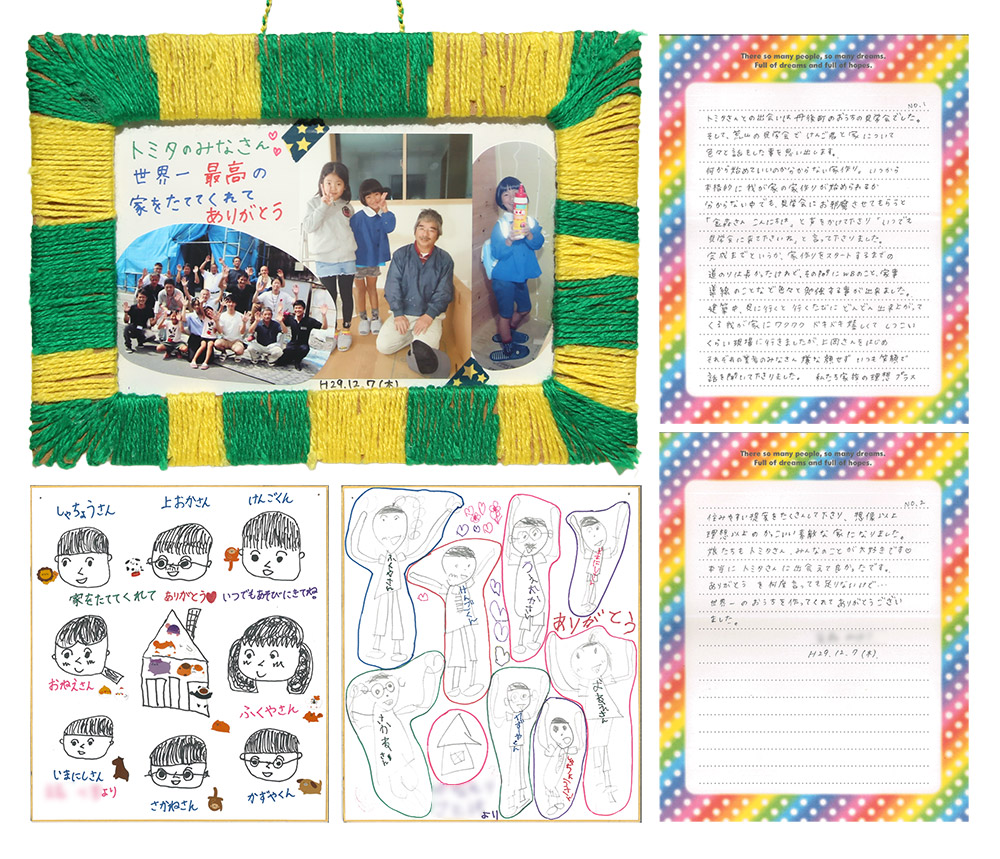 トミタのみなさん
世界一 最高の
家をたててくれて
ありがとう
H29.12.7(木)
There so many people, so many dreams.
Full of dreams and full of hopes.
NO.1
トミタさんとの出会いは丹後町のおうちの見学会でした。
そして、荒山の見学会で けんご君と家について
色々と話をした事を思い出します。
何から始めていいのか分からない家作り。いつから
本格的に我が家の家作りが始められるか
分からない中でも、見学会にお邪魔させてもらうと
さん こんにちは"と声をかけて下さり"いつでも
見学会に来て下さいね"と言って下さりました。
完成までというか、家作りをスタートするまでの
道のりは長かったけれど、その間にWBのこと、家事
導線のことなど色々と勉強する事が出来ました。
建築中、見に行くと 行くたびに どんどん出来上がって
くる我が家にワクワク ドキドキ嬉しくて しつこい
くらい現場に行きましたが、上岡さんをはじめ
それぞれの業者のみなさん 嫌な顔せず いつも笑顔で
話を聞いて下さりました。 私たち家族の理想プラス
There so many people, so many dreams.
Full of dreams and full of hopes.
NO.2
住みやすい提案をたくさんして下さり、想像以上
理想以上のかっこいい素敵な家になりました。
娘たちもトミタさん、みんなのことが大好きです♡
本当に トミタさんに出会えて良かったです。
ありがとう を何度言っても足りないけど…
世界一のおうちを作ってくれてありがとうござい
ました。
H29.12.7(木)
しゃちょうさん
上おかさん
けんごくん
家をたててくれて ありがとう♥ いつでもあそびにきてね!
おねえさん
ふくやさん
いまにしさん
さかねさん
かずやくん
より
けんごくん
うえおかさん
ありがとう
さかねさん
かずやくん
より